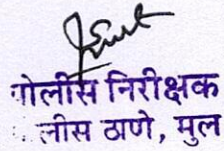 पोलीस निरीक्षक
पोलीस ठाणे, मुल